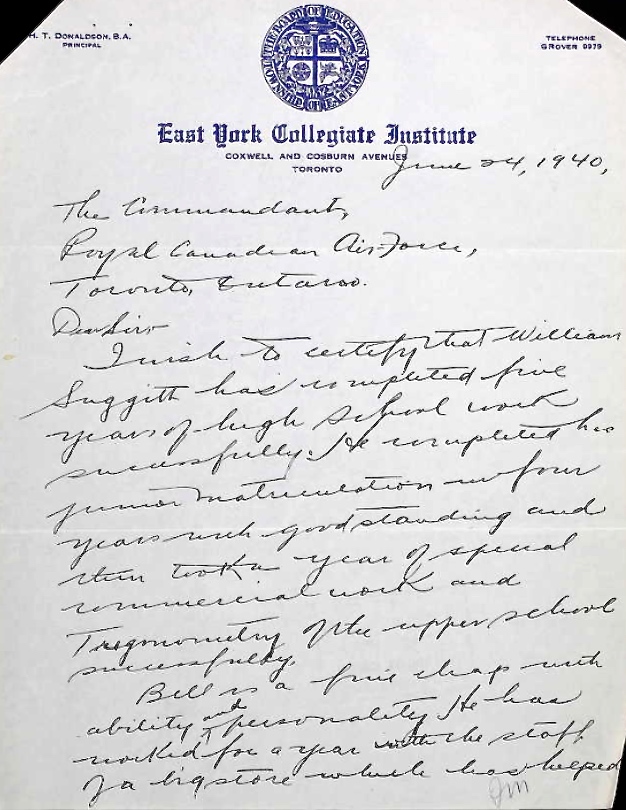 H. T. DONALDSON, B.A.
PRINCIPAL
THE BOARD OF EDUCATION
TOWNSHIP OF EAST YORK
TELEPHONE
GROVER 0979
East York Collegiate Institute
COXWELL AND COSBURN AVENUES
TORONTO
June 24, 1940,
The Commandant,
Royal Canadian Air Force,
Toronto, Ontario.
Dear Sir:-
I wish to certify that William
Suggitt has completed five
years of high school work
successfully. He completed his
junior matriculation in four
years with good standing and
then took a year of special
commercial work and
Trigonometry of the upper school
successfully.
Bill is a fine chap with
ability and personality. He has
worked for a year with the staff
of a big store which has helped
JM